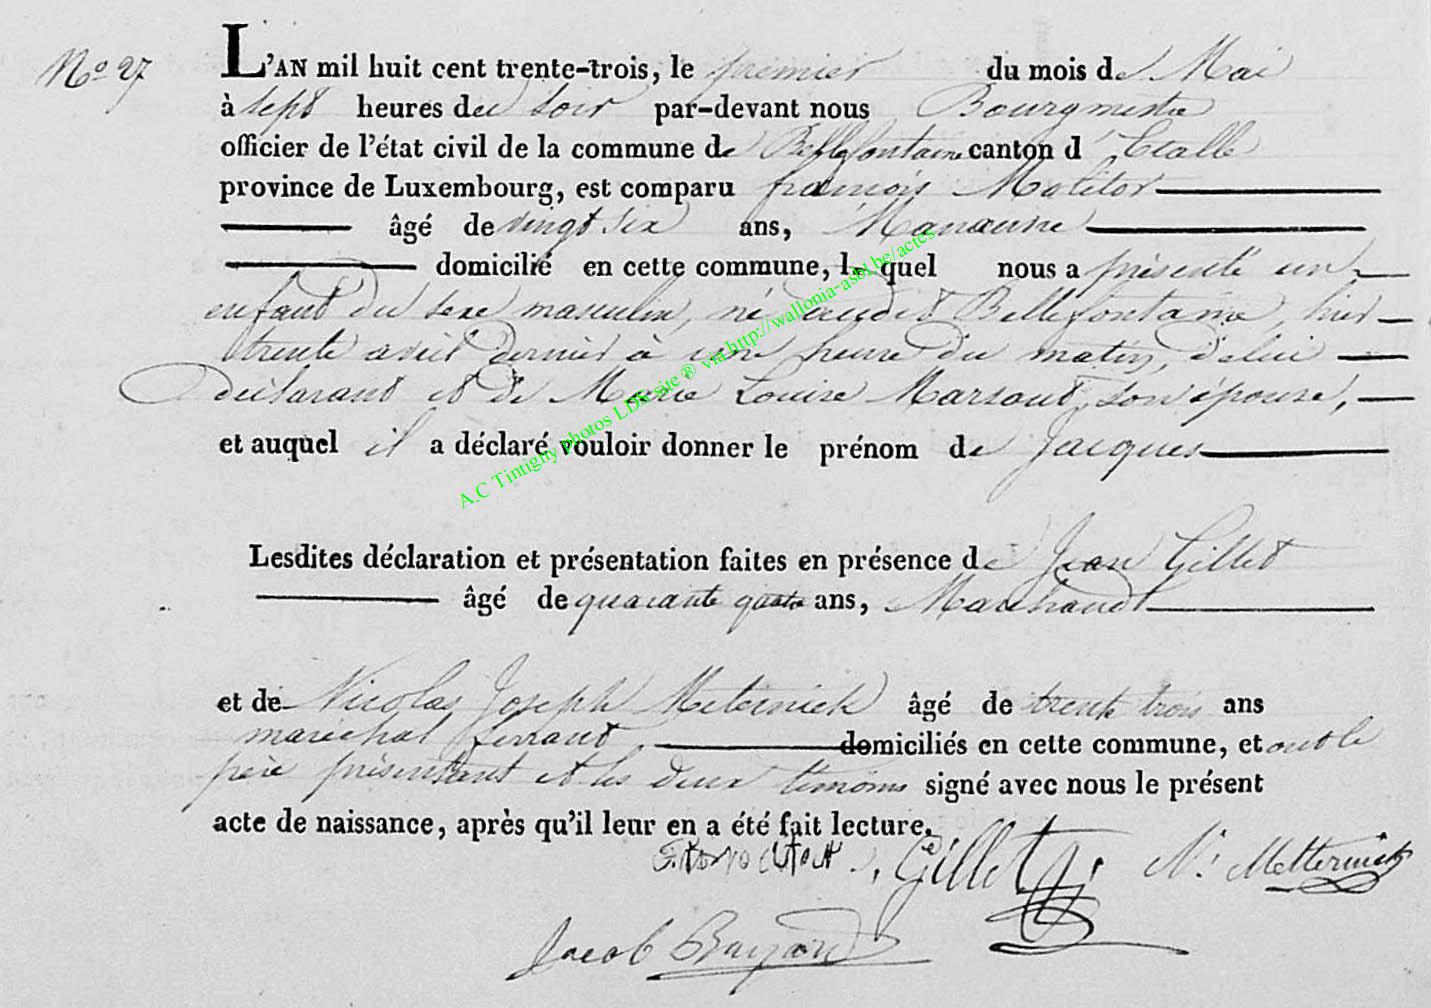 N° 27
L'AN mil huit cent trente-trois, le premier du mois de Mai
à sept heures du soir par-devant nous Bourgmestre
officier de l'état civil de la commune de Bellefontaine canton d'Etalle
province de Luxembourg, est comparu françois Molitor
âgé de vingt six ans, Manœuvre
domicilié en cette commune, lequel nous a présenté un
enfant du sexe masculin, né audit Bellefontaine, hier
trente avril dernier à une heure du matin, de lui
déclarant et de Marie Louise Marsout, son épouse,
et auquel il a déclaré vouloir donner le prénom de Jacques
Lesdites déclaration et présentation faites en présence de Jean Gillet
âgé de quarante quatre ans, Marchand
et de Nicolas Joseph Meternick âgé de trente trois ans
maréchal ferrant, domiciliés en cette commune, et ont le
père présentant et les deux témoins signé avec nous le présent
acte de naissance, après qu'il leur en a été fait lecture.
Gillet j. N. Metternick
Jacob Bayard
A.C Tintigny photos LDS site ® via http://wallonia-asbl.be/actes